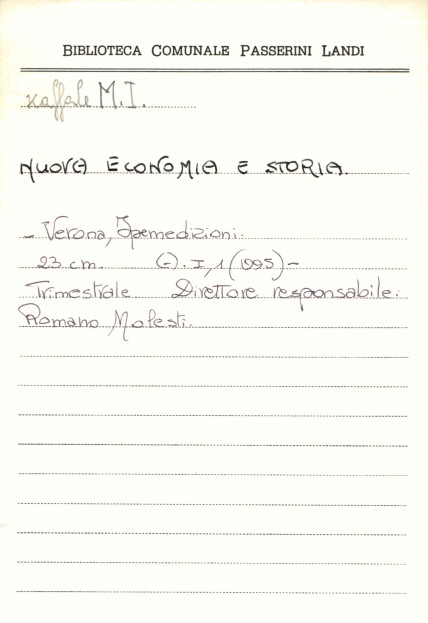 BIBLIOTECA COMUNALE PASSERINI LANDI
scaffale M.I.
NUOVA ECONOMIA E STORIA.
- Verona, Ipemedizioni.
23 cm. (-). I, 1 (1995) -
Trimestrale Direttore responsabile:
Romano Molesti.